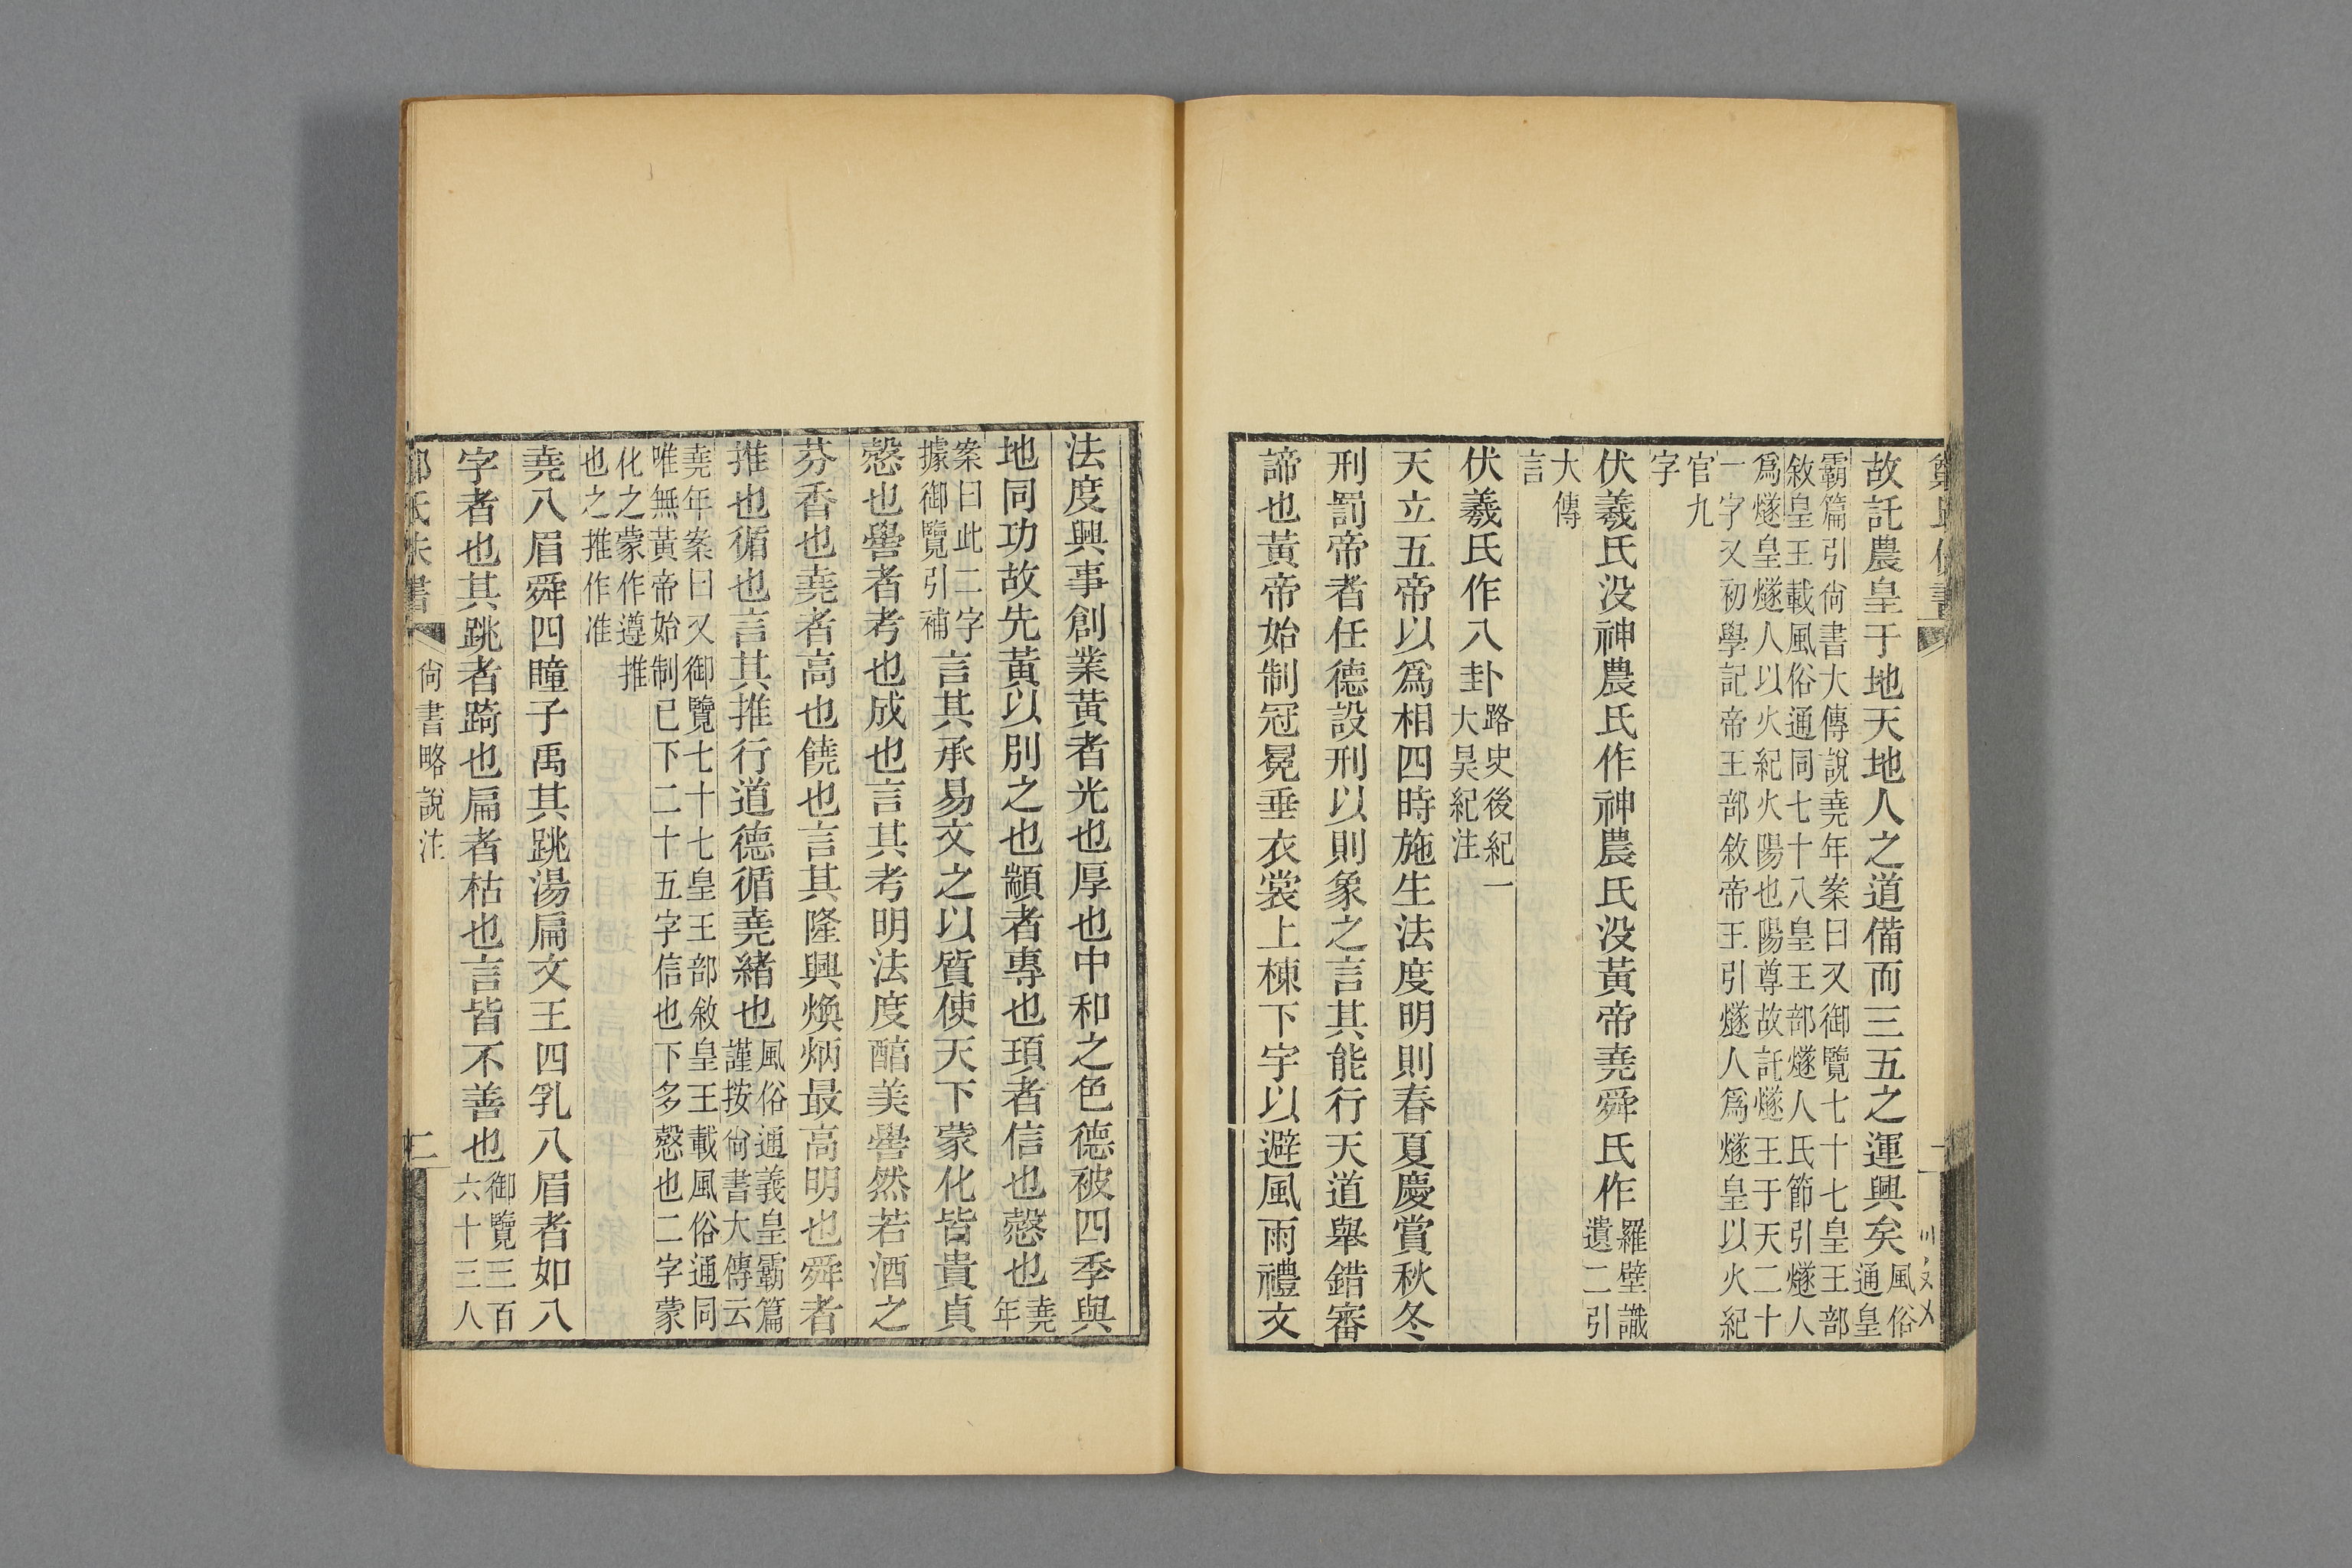 故託農皇于地天地人之道備而三五之運興矣風俗通皇
霸篇引尙書大傳說堯年案曰又御覽七十七皇王部
敘皇王載風俗通同七十八皇王部燧人氏節引燧人
爲燧皇燧人以火紀火陽也陽尊故託燧王于天二十
一字又初學記帝王部敘帝王引燧人爲燧皇以火紀
官九
字
伏羲氏没神農氏作神農氏没黃帝堯舜氏作羅壁識遺二引
大傳
言
伏羲氏作八卦路史後紀一大昊紀注
天立五帝以爲相四時施生法度明則春夏慶賞秋冬
刑罰帝者任德設刑以則象之言其能行天道舉錯審
諦也黃帝始制冠冕垂衣裳上棟下宇以避風雨禮文
法度興事創業黃者光也厚也中和之色德被四季與
地同功故先黃以別之也顓者專也頊者信也愨也堯年
案曰此二字據御覽引補言其承易文之以質使天下蒙化皆貴貞
愨也嚳者考也成也言其考明法度醕美嚳然若酒之
芬香也堯者高也饒也言其隆興煥炳最高明也舜者
推也循也言其推行道德循堯緒也風俗通義皇霸篇謹按尙書大傳云
堯年案曰又御覽七十七皇王部敘皇王載風俗通同
唯無黃帝始制已下二十五字信也下多愨也二字蒙
化之蒙作遵推
也之推作准
堯八眉舜四瞳子禹其跳湯扁文王四乳八眉者如八
字者也其跳者踦也扁者枯也言皆不善也御覽三百六十三人
尙書略說注
二